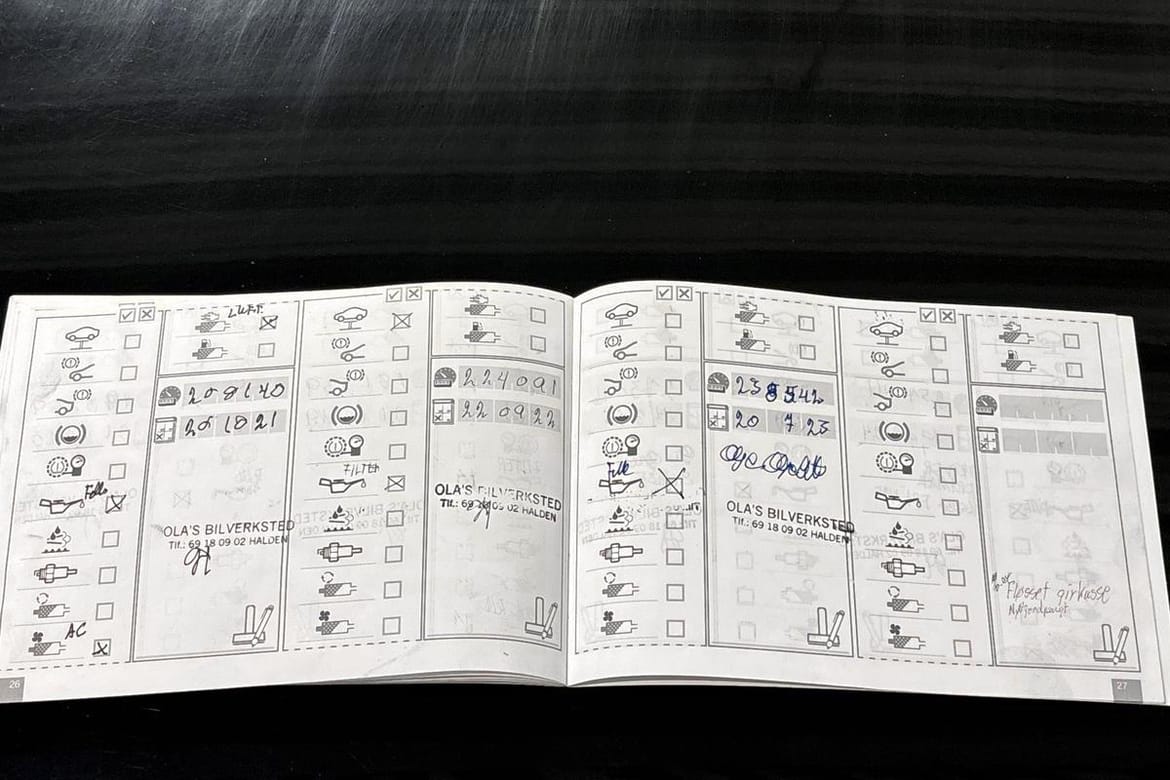 LUFT
208140
Filter
OLA'S BILVERKSTED
Tlf.: 69 18 09 02 HALDEN
AC
26
224091
22 09 22
FILTER
OLA'S BILVERKSTED
Tlf.: 69 18 09 02 HALDEN
20 7 23
OLA'S BILVERKSTED
Tlf.: 69 18 09 02 HALDEN
Fløsset girkasse
27